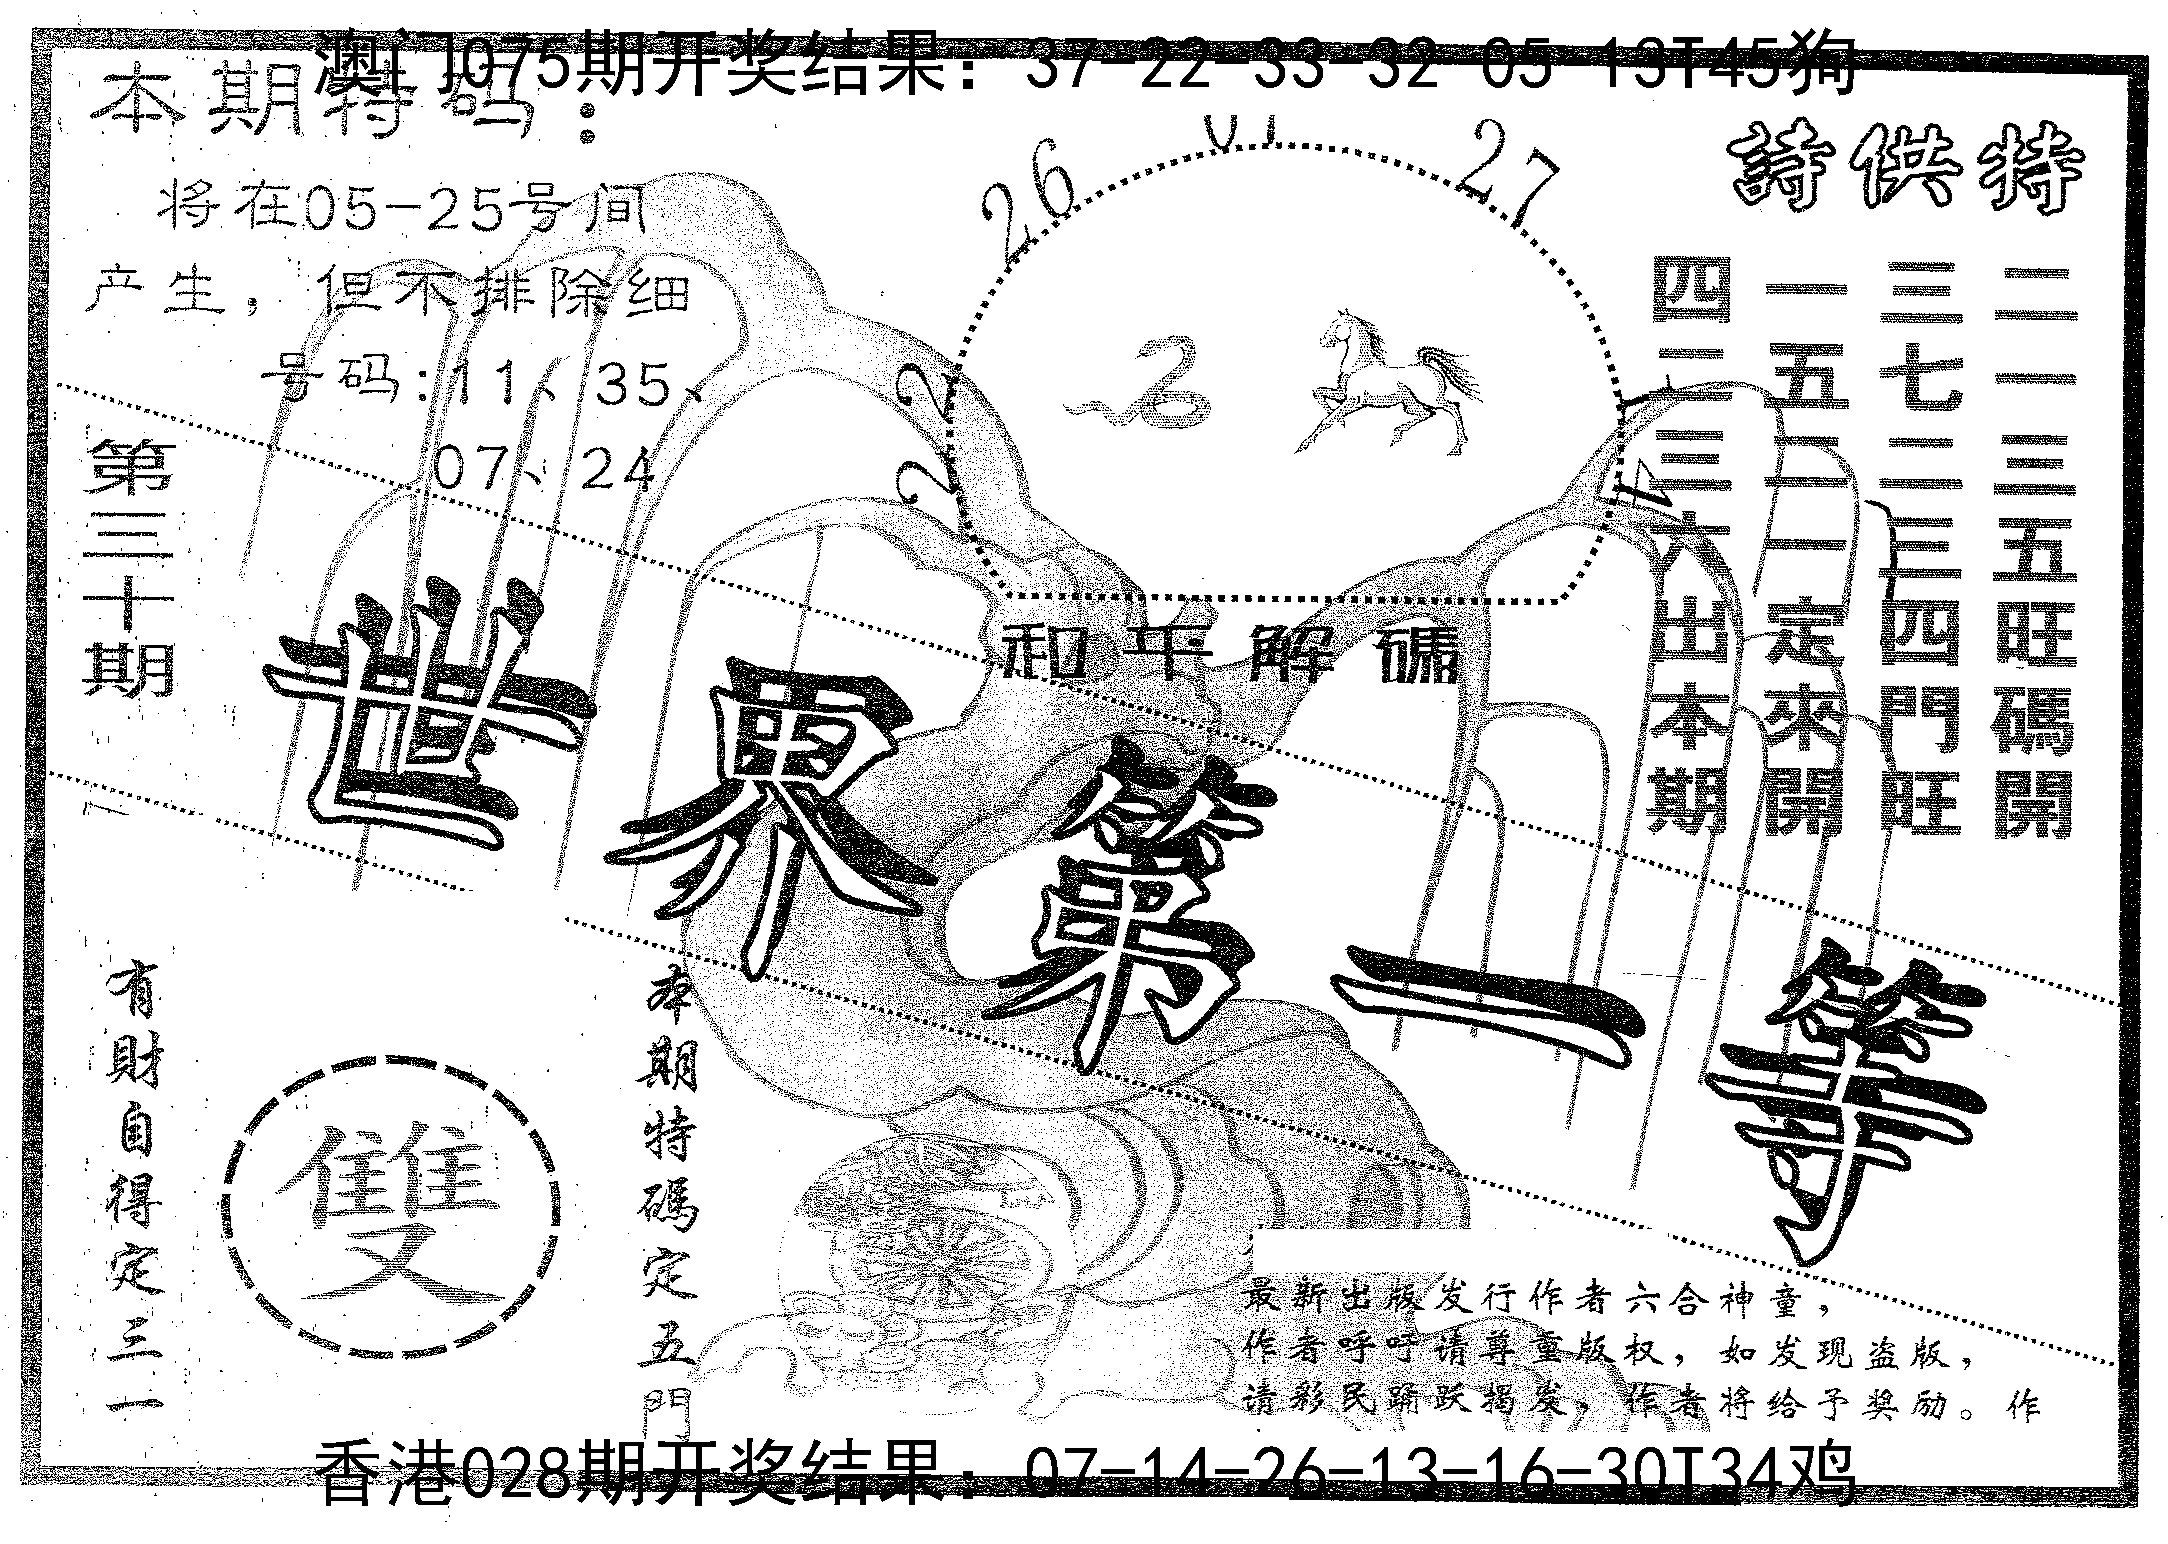 澳门075期开奖结果：37-22-33-32-05-13T45狗
本期特码：
将在05-25号间
产生，但不排除细
号码:11、35、
07、24
第三十期
26
27
22
22
特供詩
二一三五旺碼開
三七二三四門旺
一五二一定來開
四二三六出本期
和平解碼
世界第一等
有財自得定三一
雙
本期特碼定五門
最新出版发行作者六合神童，
作者呼吁请尊重版权，如发现盗版，
请彩民踊跃揭发，作者将给予奖励。作
香港028期开奖结果：07-14-26-13-16-30T34鸡